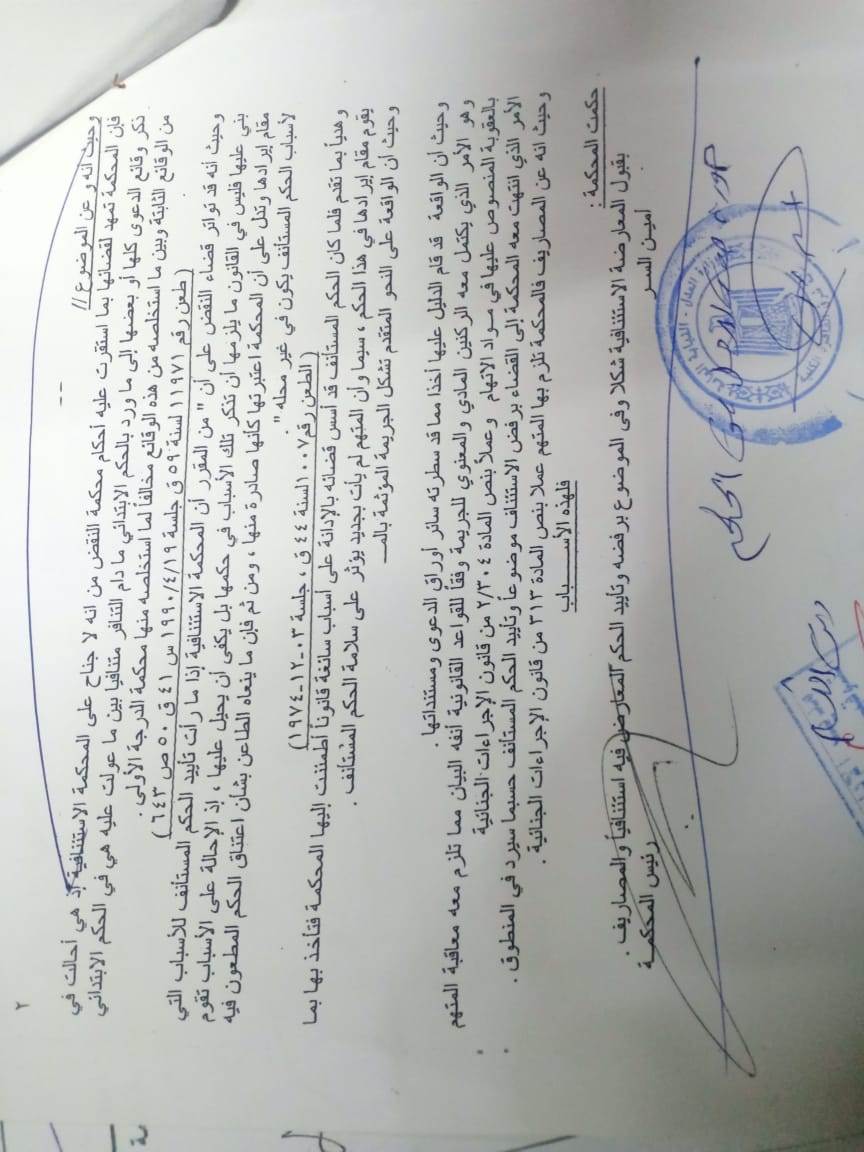 ٢
وحيث انه وعن الموضوع //
فإن المحكمة تمهد لقضائها بما استقرت عليه أحكام محكمة النقض من انه لا جناح على المحكمة الاستئنافية إذ هي أحالت في
ذكر وقائع الدعوى كلها أو بعضها إلى ما ورد بالحكم الابتدائي ما دام التنافر متنافيا بين ما عولت عليه هي في الحكم الابتدائي
من الوقائع الثابتة وبين ما استخلصه من هذه الوقائع مخالفاً لما استخلصه منها محكمة الدرجة الأولى .
(طعن رقم ١١٩٧١ لسنة ٥٩ ق جلسة ١٩٩٠/٤/١٩ س ٤١ ق ٥٠ ص ٦٤٣ )
وحيث أنه قد تواتر قضاء النقض على أن " من المقرر أن المحكمة الاستئنافية إذا ما رأت تأييد الحكم المستأنف للأسباب التي
بني عليها فليس في القانون ما يلزمها أن تذكر تلك الأسباب في حكمها بل يكفى أن يحيل عليها ، إذ الإحالة على الأسباب تقوم
مقام إيرادها وتدل على أن المحكمة اعتبرتها كأنها صادرة منها ، ومن ثم فإن ما ينعاه الطاعن بشأن اعتناق الحكم المطعون فيه
لأسباب الحكم المستأنف يكون في غير محله "
(الطعن رقم ١٠٠٧ لسنة ٤٤ ق ، جلسة ٠٣-١٢-١٩٧٤)
وهدياً بما تقدم فلما كان الحكم المستأنف قد أسس قضائه بالإدانة على أسباب سائغة قانوناً أطمئنت إليها المحكمة فتأخذ بها بما
يقوم مقام إيرادها في هذا الحكم ، سيما وأن المتهم لم يأت بجديد يؤثر على سلامة الحكم المستأنف .
وحيث أن الواقعة على النحو المتقدم تشكل الجريمة المؤثمة بالمـ
وحيث أن الواقعة قد قام الدليل عليها أخذا مما قد سطرته سائر أوراق الدعوى ومستنداتها .
وهو الأمر الذي يكتمل معه الركنين المادي والمعنوي للجريمة وفقاً للقواعد القانونية أنفه البيان مما تلزم معه معاقبة المتهم
بالعقوبة المنصوص عليها في مواد الاتهام وعملاً بنص المادة ٢/٣٠٤ من قانون الإجراءات الجنائية
الأمر الذي انتهت معه المحكمة إلى القضاء برفض الاستئناف موضوعاً وتأييد الحكم المستأنف حسبما سيرد في المنطوق .
وحيث انه عن المصاريف فالمحكمة تلزم بها المتهم عملا بنص المادة ٣١٣ من قانون الإجراءات الجنائية .
فلهذه الأســـباب
حكمت المحكمة :
بقبول المعارضة الاستئنافية شكلا وفى الموضوع برفضه وتأييد الحكم المعارض فيه استئنافياً والمصاريف .
أمين السر
رئيس المحكمة